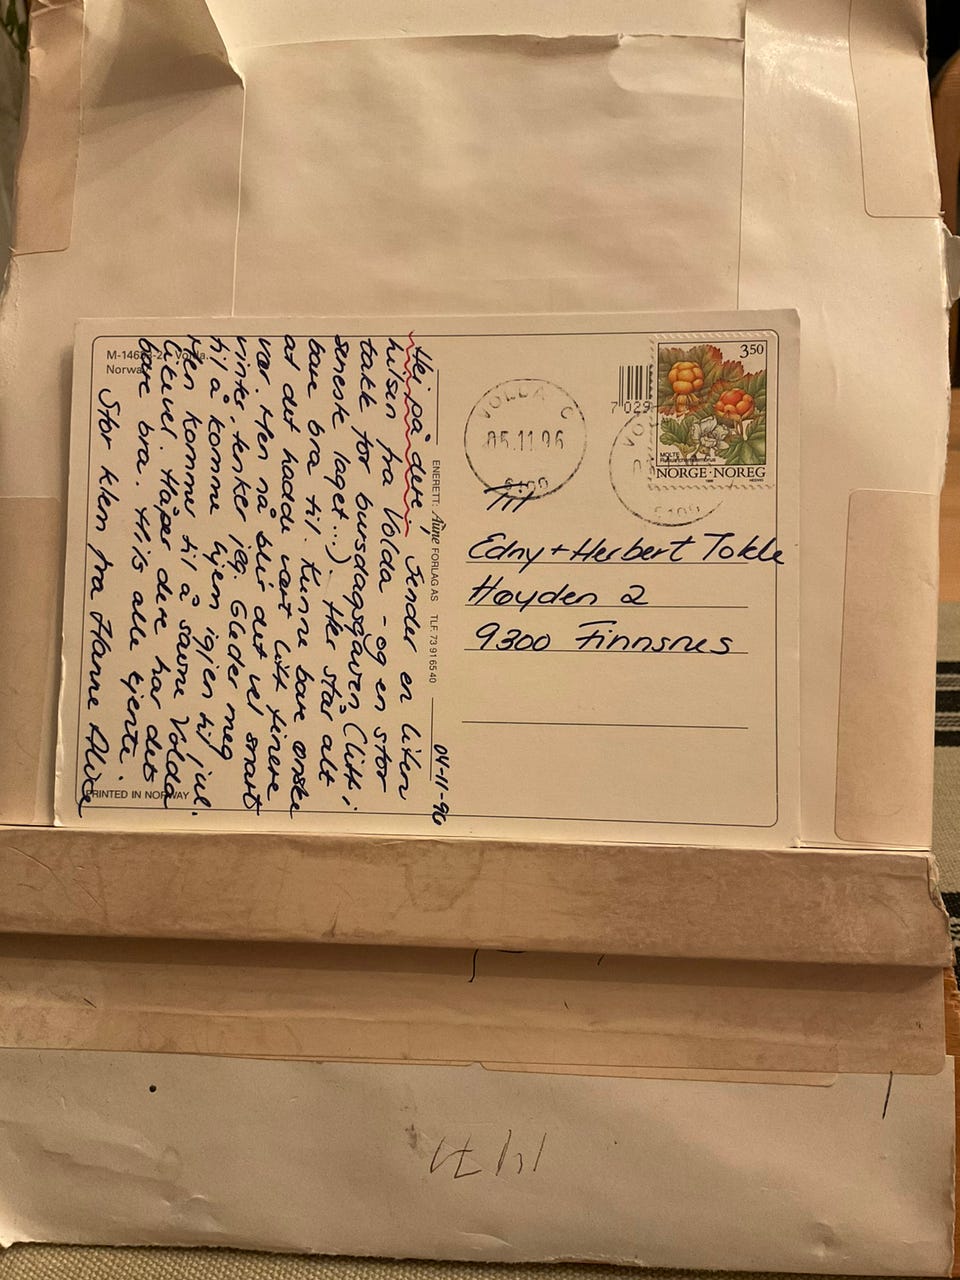 M-14653-2 Volda.
Norway
04-11-96
Hei på dere! Sender en liten
hilsen fra Volda - og en stor
takk for bursdagsgaven (litt i
seneste laget...). Her står alt
bare bra til. Kunne bare ønske
at det hadde vært litt finere
vær. Men nå blir det vel snart
vinter, tenker jeg. Gleder meg
til å komme hjem igjen til jul.
Men kommer til å savne Volda
likevel. Håper dere har det
bare bra. Hils alle kjente.
Stor klem fra Hanne
PRINTED IN NORWAY
ENERETT: Aune FORLAG AS TLF. 73 91 65 40
VOLDA C
05.11.96
6100
7 029
350
MOLTE
NORGE·NOREG
Til
Edny + Herbert Tokle
Høyden 2
9300 Finnsnes